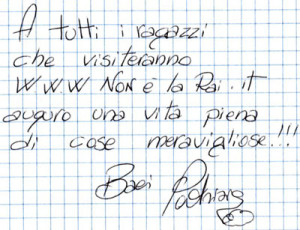 A tutti i ragazzi
che visiteranno
WWW Non è la Rai.it
auguro una vita piena
di cose meravigliose!!!
Baci